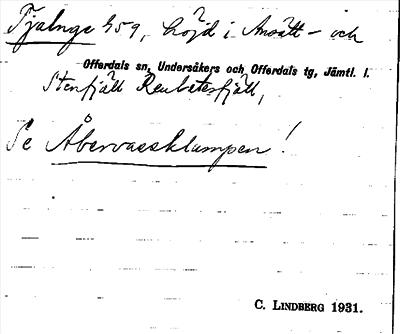 Tjalnge 959, höjd i Ansätt- och
Offerdals sn, Undersåkers och Offerdals tg, Jämtl. l.
Stenfjäll Renbetesfjäll,
Se Åbervaessklumpen!
C. LINDBERG 1931.